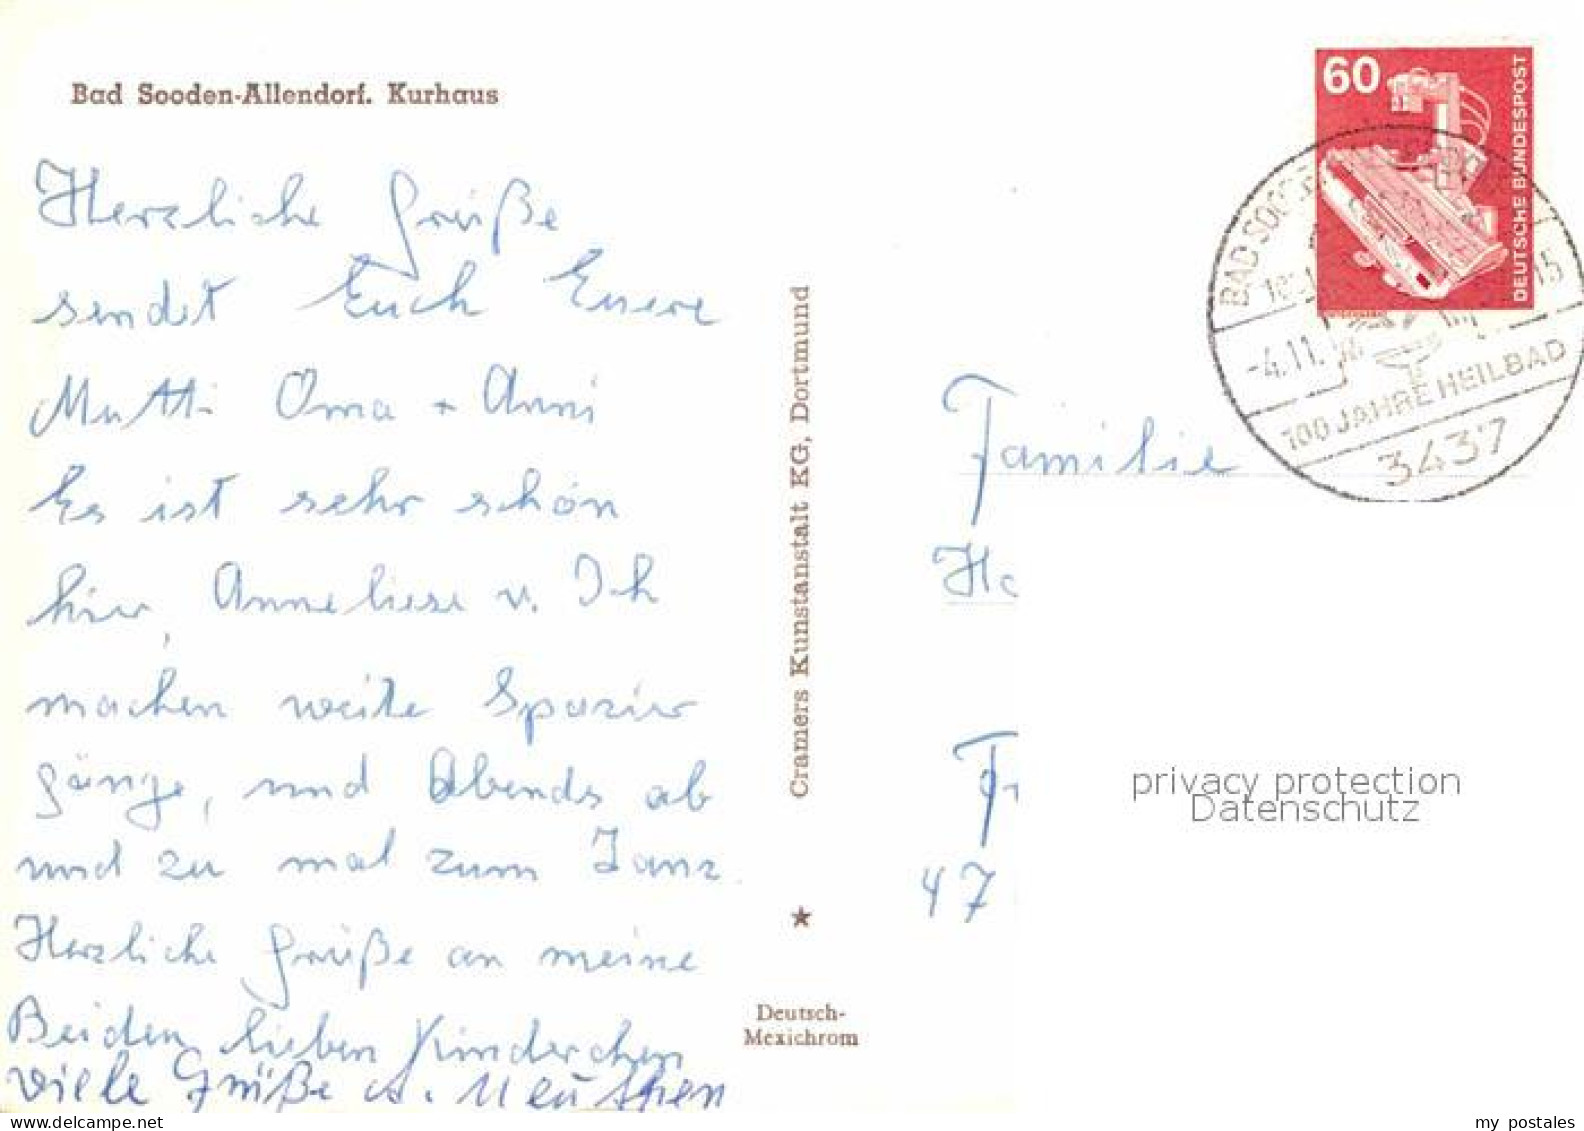 Bad Sooden-Allendorf. Kurhaus
Herzliche Grüße
sendet Euch Euere
Mutti Oma + Anni
Es ist sehr schön
hier, Anneliese u. Ich
machen weite Spazier
gänge, und Abends ab
und zu mal zum Tanz.
Herzliche Grüße an meine
Beiden lieben Kinderchen
viele Grüße A.
Cramers Kunstanstalt KG, Dortmund
Deutsch-
Mexichrom
60
DEUTSCHE BUNDESPOST
BAD SOODEN
-4.11.
15
100 JAHRE HEILBAD
3437
Familie
47
privacy protection
Datenschutz
delcampe.net
my postales